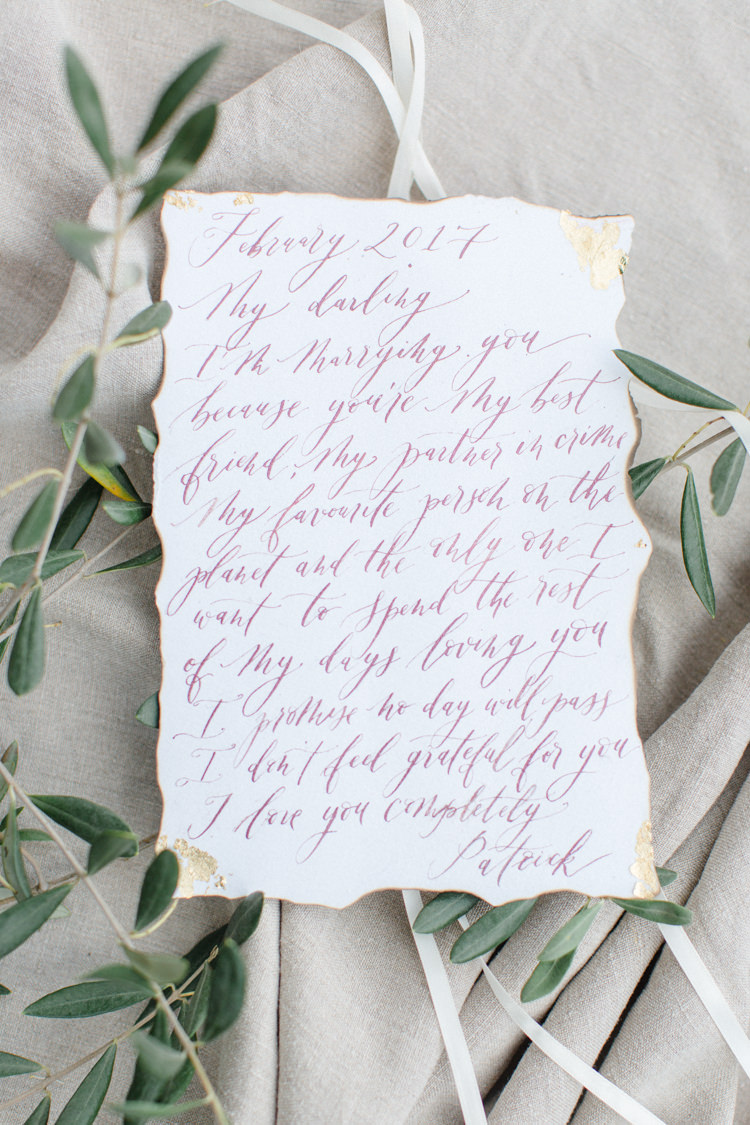 February 2017
My darling
I'm marrying you
because you're my best
friend, my partner in crime
my favourite person on the
planet and the only one I
want to spend the rest
of my days loving you
I promise no day will pass
I don't feel grateful for you
I love you completely
Patrick